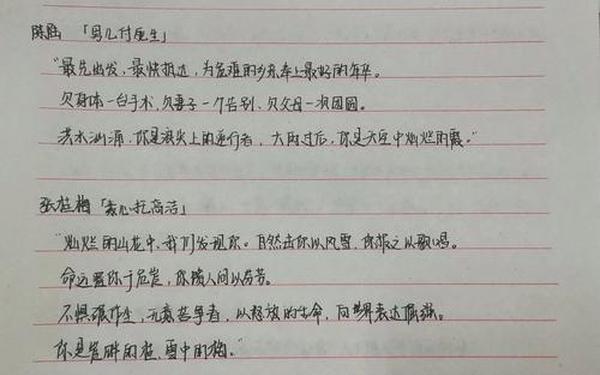 陈陆「男儿付度生」
“最先出发，最快抵达，为危难的乡亲奉上最好的年华。
欠身体一台手术，欠妻子一个告别，欠父母一次团圆。
洪水汹涌，你是浪尖上的逆行者，大雨过后，你是天空中灿烂的霞。”
张桂梅「素心托高洁」
“灿烂的山花中，我们发现你。自然击你以风雪，你报之以歌唱。
命运置你于危崖，你馈人间以芬芳。
不惧碾作尘，无意苦争春，以怒放的生命，向世界表达倔强。
你是崖畔的桂，雪中的梅。”